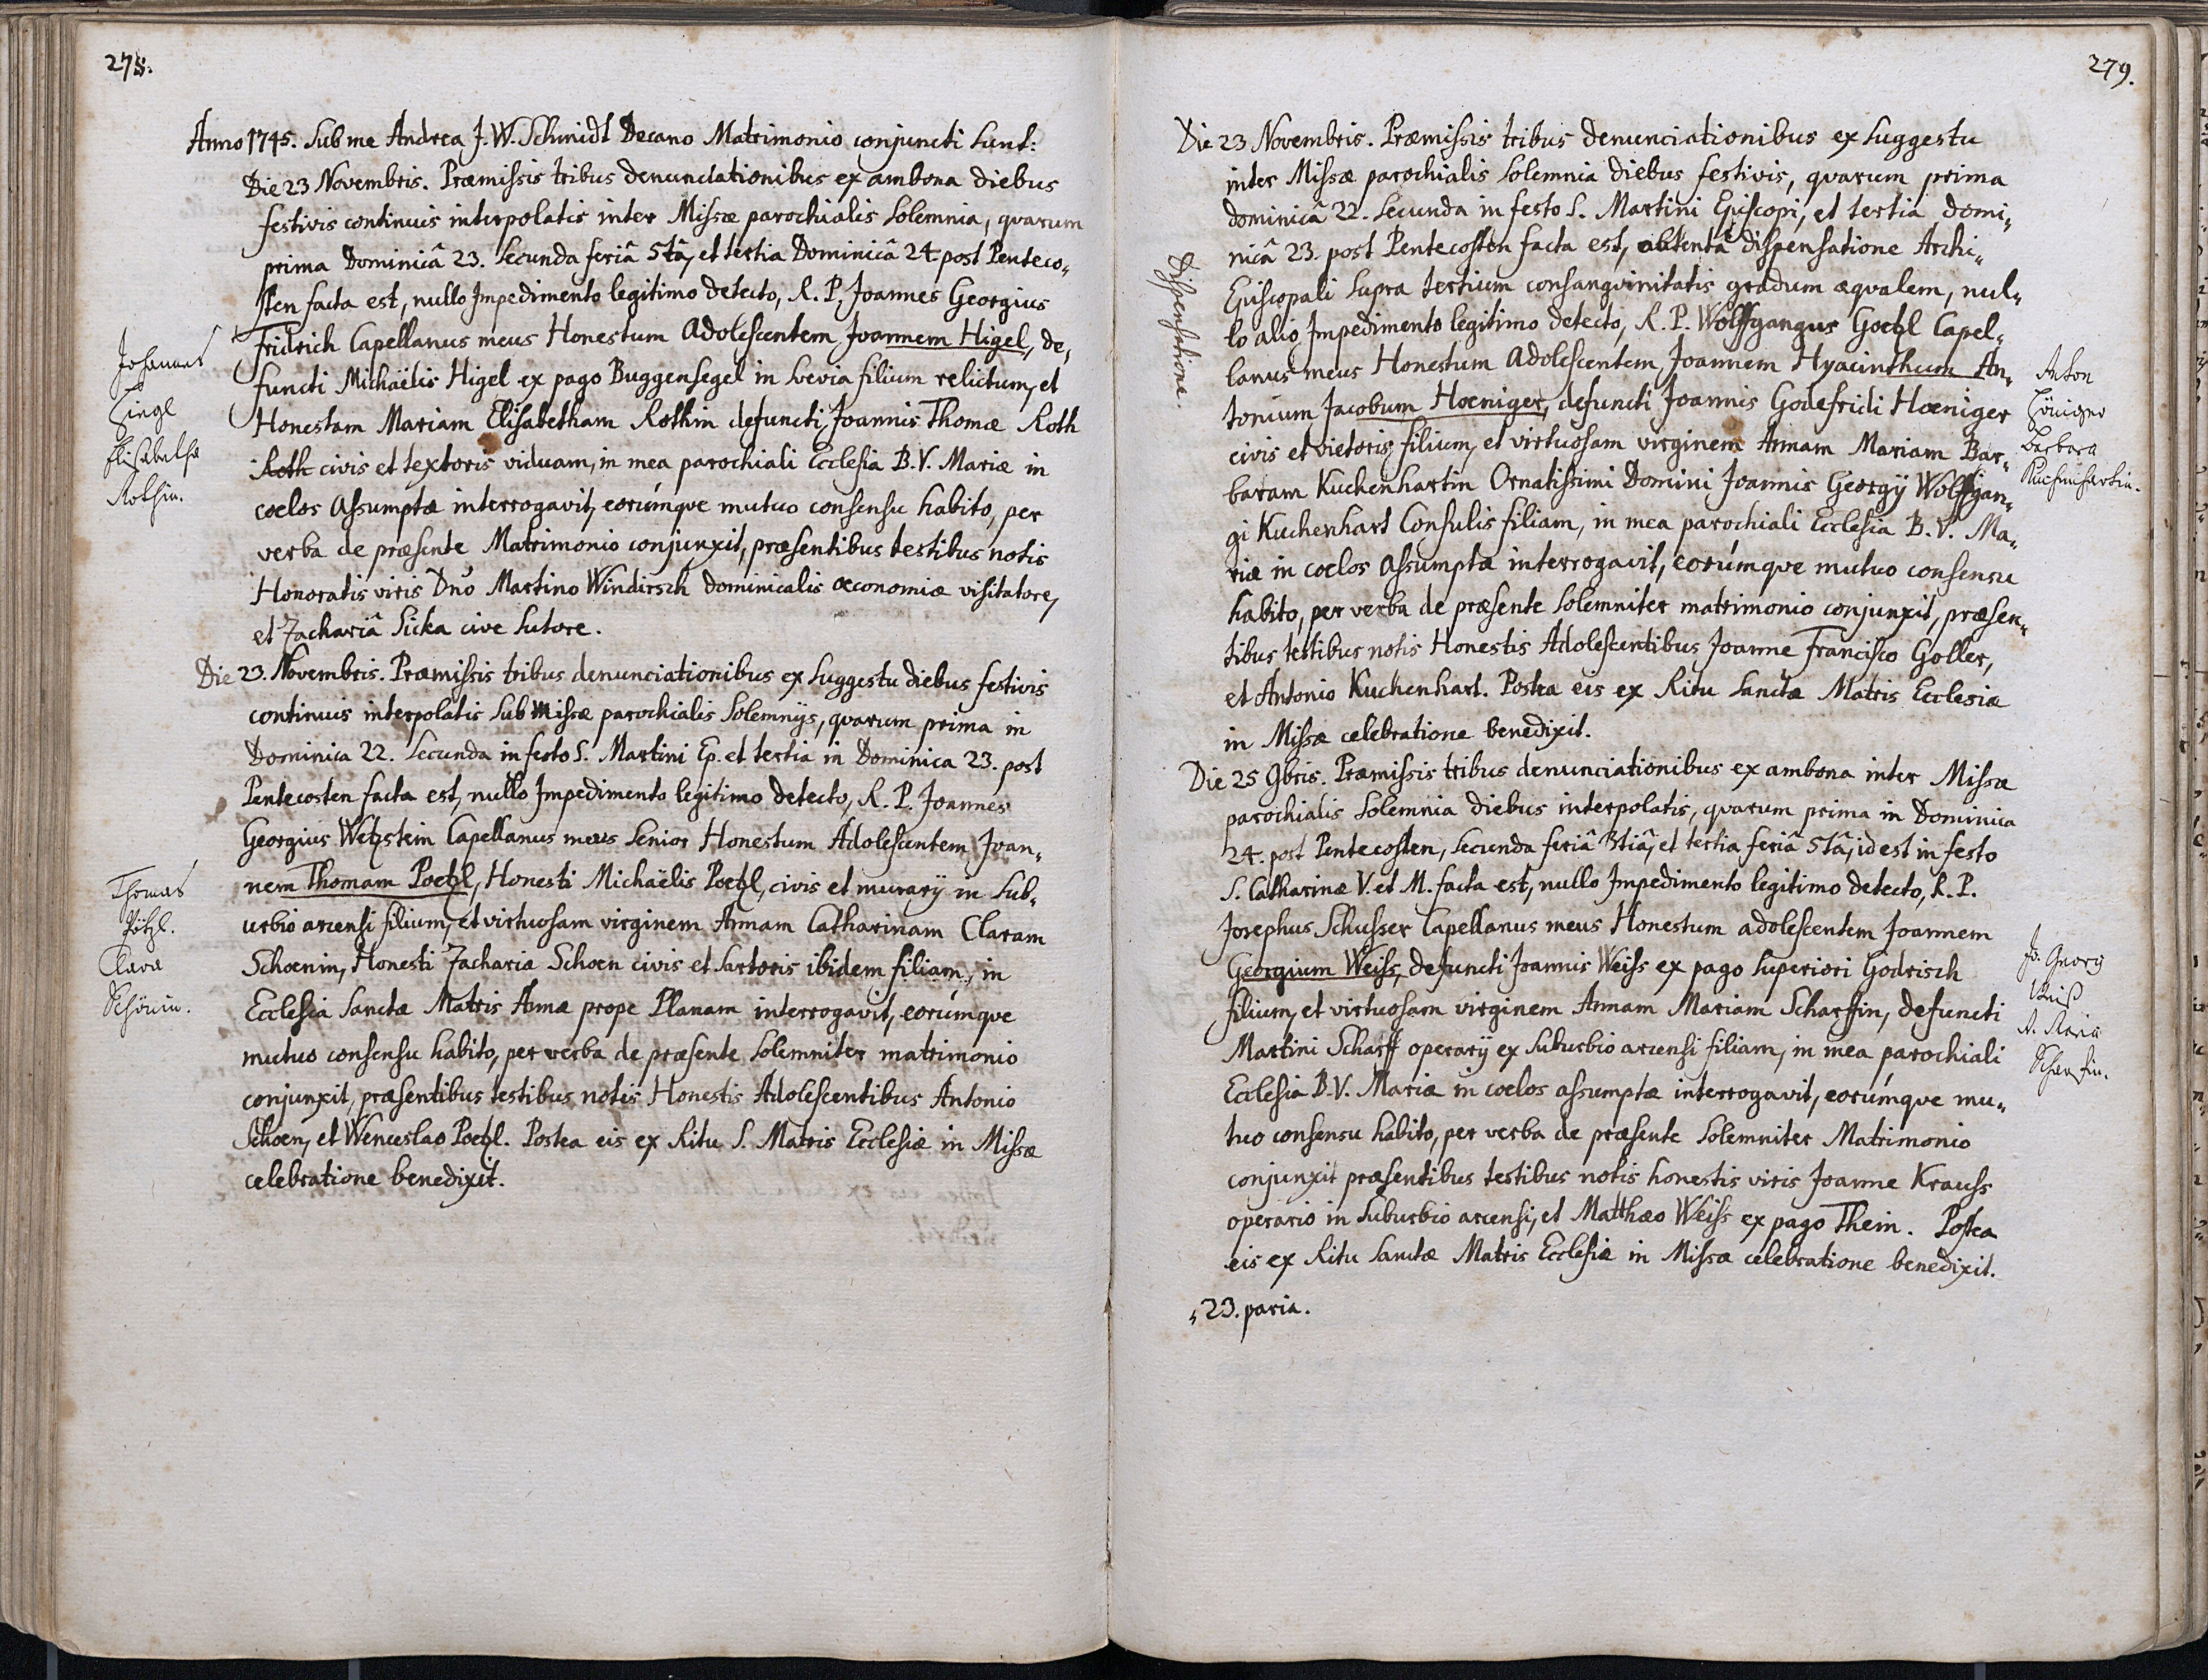 278.
Anno 1745. Sub me Andrea J. W. Schmidt Decano Matrimonio conjuncti sunt:
Die 23 Novembris. Præmissis tribus denunciationibus ex ambona diebus
festivis continuis interpolatis inter Missæ parochialis Solemnia, qvarum
prima Dominicâ 23. Secunda feriâ 5tâ, et tertia Dominicâ 24 post Penteco„
sten facta est, nullo Impedimento legitimo detecto, R. P. Joannes Georgius
Fridrich Capellanus meus Honestum Adolescentem Joannem Higel, de„
functi Michaëlis Higel ex pago Buggensegel in Svevia filium relictum, et
Honestam Mariam Elisabetham Rothin defuncti Joannis Thomæ Roth
Roth civis et textoris viduam, in mea parochiali Ecclesia B. V. Mariæ in
coelos Assumptæ interrogavit, eorúmqve mutuo consensu habito, per
verba de præsente Matrimonio conjunxit, præsentibus testibus notis
Honoratis viris Dno Martino Windirsch dominicalis oeconomiæ visitatore,
et Zachariâ Sicka cive sutore.
Johannes
Hingl
Elisabetha
Rothin.
Die 23. Novembris. Præmissis tribus denunciationibus ex suggestu diebus festivis
continuis interpolatis sub Missæ parochialis Solemnijs, qvarum prima in
Dominica 22. Secunda in festo S. Martini Ep. et tertia in Dominica 23. post
Pentecosten facta est, nullo Impedimento legitimo detecto, R. P. Joannes
Georgius Wetzstein Capellanus meus Senior Honestum Adolescentem Joan„
nem Thomam Poetzl, Honesti Michaëlis Poetzl, civis et murarij in Sub„
urbio arcensi filium, et virtuosam virginem Annam Catharinam Claram
Schoenin, Honesti Zachariæ Schoen civis et Sartoris ibidem filiam, in
Ecclesia Sanctæ Matris Annæ prope Planam interrogavit, eorúmqve
mutuo consensu habito, per verba de præsente Solemniter matrimonio
conjunxit, præsentibus testibus notis Honestis Adolescentibus Antonio
Schoen, et Wenceslao Poetzl. Postea eis ex Ritu S. Matris Ecclesiæ in Missæ
celebratione benedixit.
Thomas
Pötzl.
Clara
Schönin.
279.
Die 23 Novembris. Præmissis tribus denunciationibus ex Suggestu
inter Missæ parochialis Solemnia diebus festivis, qvarum prima
dominicâ 22. Secunda in festo S. Martini Episcopi, et tertia domi„
nicâ 23. post Pentecosten facta est, obtentâ dispensatione Archi„
Episcopali supra tertium consangvinitatis gradum æqvalem, nul„
lo alio Impedimento legitimo detecto, R. P. Wolffgangus Goetzl Capel„
lanus meus Honestum Adolescentem Joannem Hyacinthum An„
tonium Jacobum Hoeniger, defuncti Joannis Godefridi Hoeniger
civis et vietoris filium, et virtuosam virginem Annam Mariam Bar„
baram Kuchenhartin Ornatissimi Domini Joannis Georgij Wolffgan„
gi Kuchenhart Consulis filiam, in mea parochiali Ecclesia B. V. Ma„
riæ in coelos Assumptæ interrogavit, eorúmqve mutuo consensu
habito, per verba de præsente Solemniter matrimonio conjunxit, præsen„
tibus testibus notis Honestis Adolescentibus Joanne Francisco Goller,
et Antonio Kuchenhart. Postea eis ex Ritu Sanctæ Matris Ecclesiæ
in Missæ celebratione benedixit.
Dispensatione.
Anton
Höniger
Barbara
Kuchenhartin.
Die 25 9bris. Præmissis tribus denunciationibus ex ambona inter Missæ
parochialis Solemnia diebus interpolatis, qvarum prima in Dominica
24. post Pentecosten, Secunda feriâ 3tiâ, et tertia feriâ 5tâ, id est in festo
S. Catharinæ V. et M. facta est, nullo Impedimento legitimo detecto, R. P.
Josephus Schusser Capellanus meus Honestum adolescentem Joannem
Georgium Weiss, defuncti Joannis Weiss ex pago superiori Godrisch
filium, et virtuosam virginem Annam Mariam Scharffin, defuncti
Martini Scharff operarij ex Suburbio arcensi filiam, in mea parochiali
Ecclesia B. V. Mariæ in coelos assumptæ interrogavit, eorúmqve mu„
tuo consensu habito, per verba de præsente Solemniter Matrimonio
conjunxit præsentibus testibus notis honestis viris Joanne Krauss
operario in Suburbio arcensi, et Matthæo Weiss ex pago Thein. Postea
eis ex Ritu Sanctæ Matris Ecclesiæ in Missæ celebratione benedixit.
Jo. Georg
Weiß
A. Maria
Scharfin.
„23. paria.